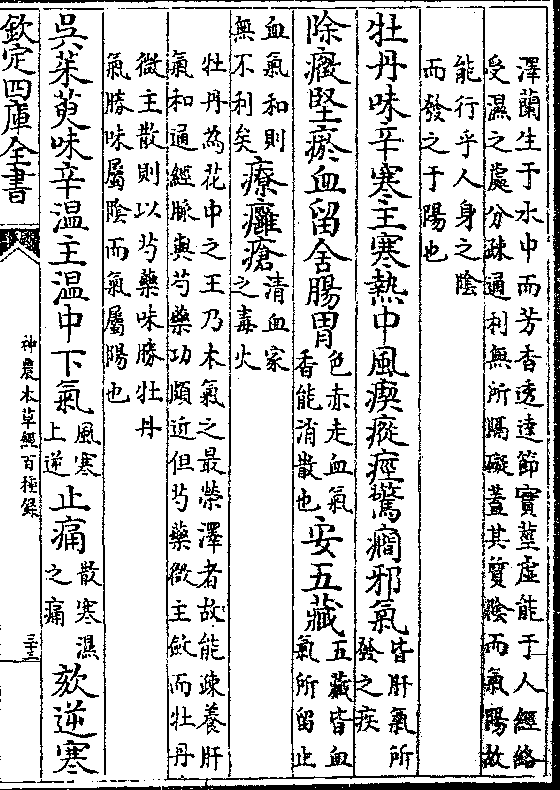 澤蘭生于水中而芳香透達節實莖虛能于人經絡
受濕之處分疎通利無所隔礙葢其質陰而氣陽故
能行乎人身之陰
而發之于陽也
牡丹味辛寒主寒熱中風瘈瘲痙驚癇邪氣皆肝氣所發之疾
除癥堅瘀血留舍腸胃色赤走血氣香能消散也安五藏五藏皆血氣所留止
血氣和則無不利矣療癰瘡清血家之毒火
牡丹為花中之王乃木氣之最榮澤者故能疎養肝
氣和通經脈與芍藥功頗近但芍藥微主斂而牡丹
微主散則以芍藥味勝牡丹
氣勝味屬陰而氣屬陽也
吳茱萸味辛溫主溫中下氣風寒上逆止痛散寒濕之痛欬逆寒
欽定四庫全書
神農本草經百種錄
三十三